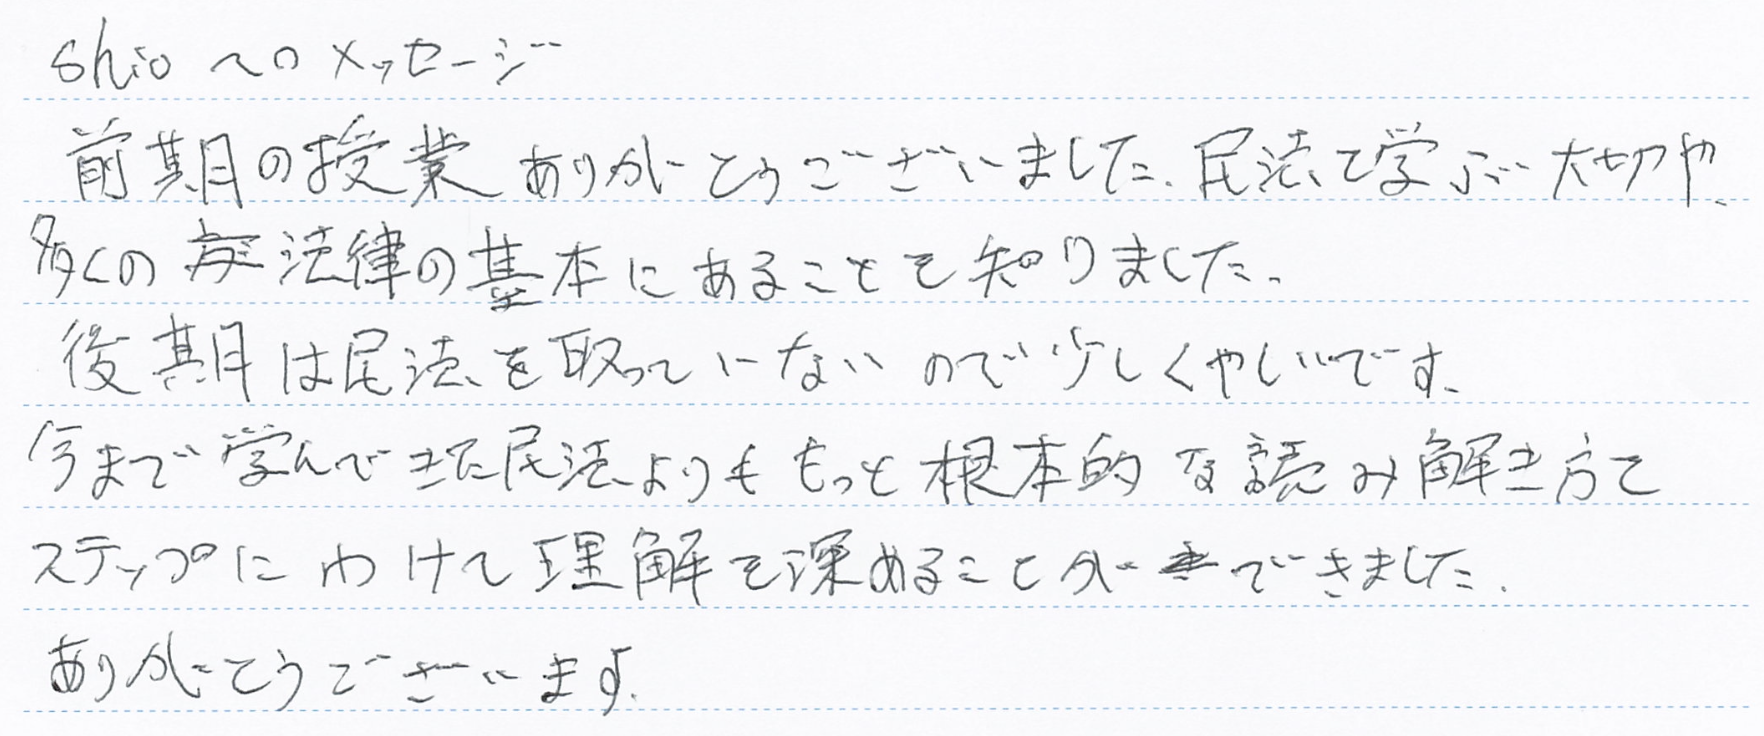 shioへのメッセージ
前期の授業ありがとうございました。民法で学ぶ大切や、
多くの法律の基本にあることを知りました。
後期は民法を取っていないので少しくやしいです。
今まで学んできた民法よりももっと根本的な読み解き方を
ステップにわけて理解を深めることができました。
ありがとうございます。